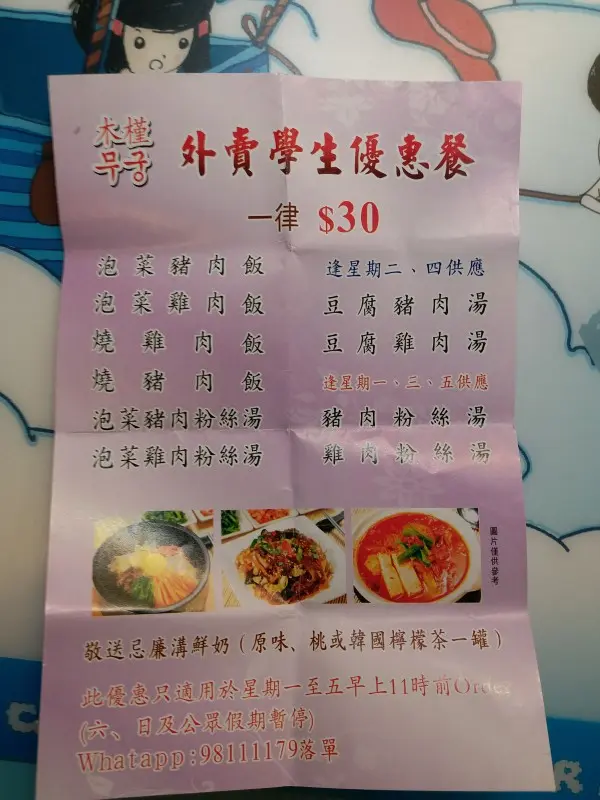 木槿
무궁
外賣學生優惠餐
一律 $30
泡菜豬肉飯
泡菜雞肉飯
燒雞肉飯
燒豬肉飯
泡菜豬肉粉絲湯
泡菜雞肉粉絲湯
逢星期二、四供應
豆腐豬肉湯
豆腐雞肉湯
逢星期一、三、五供應
豬肉粉絲湯
雞肉粉絲湯
圖片僅供參考
敬送忌廉溝鮮奶(原味、桃或韓國檸檬茶一罐)
此優惠只適用於星期一至五早上11時前Order
(六、日及公眾假期暫停)
Whatapp:98111179落單